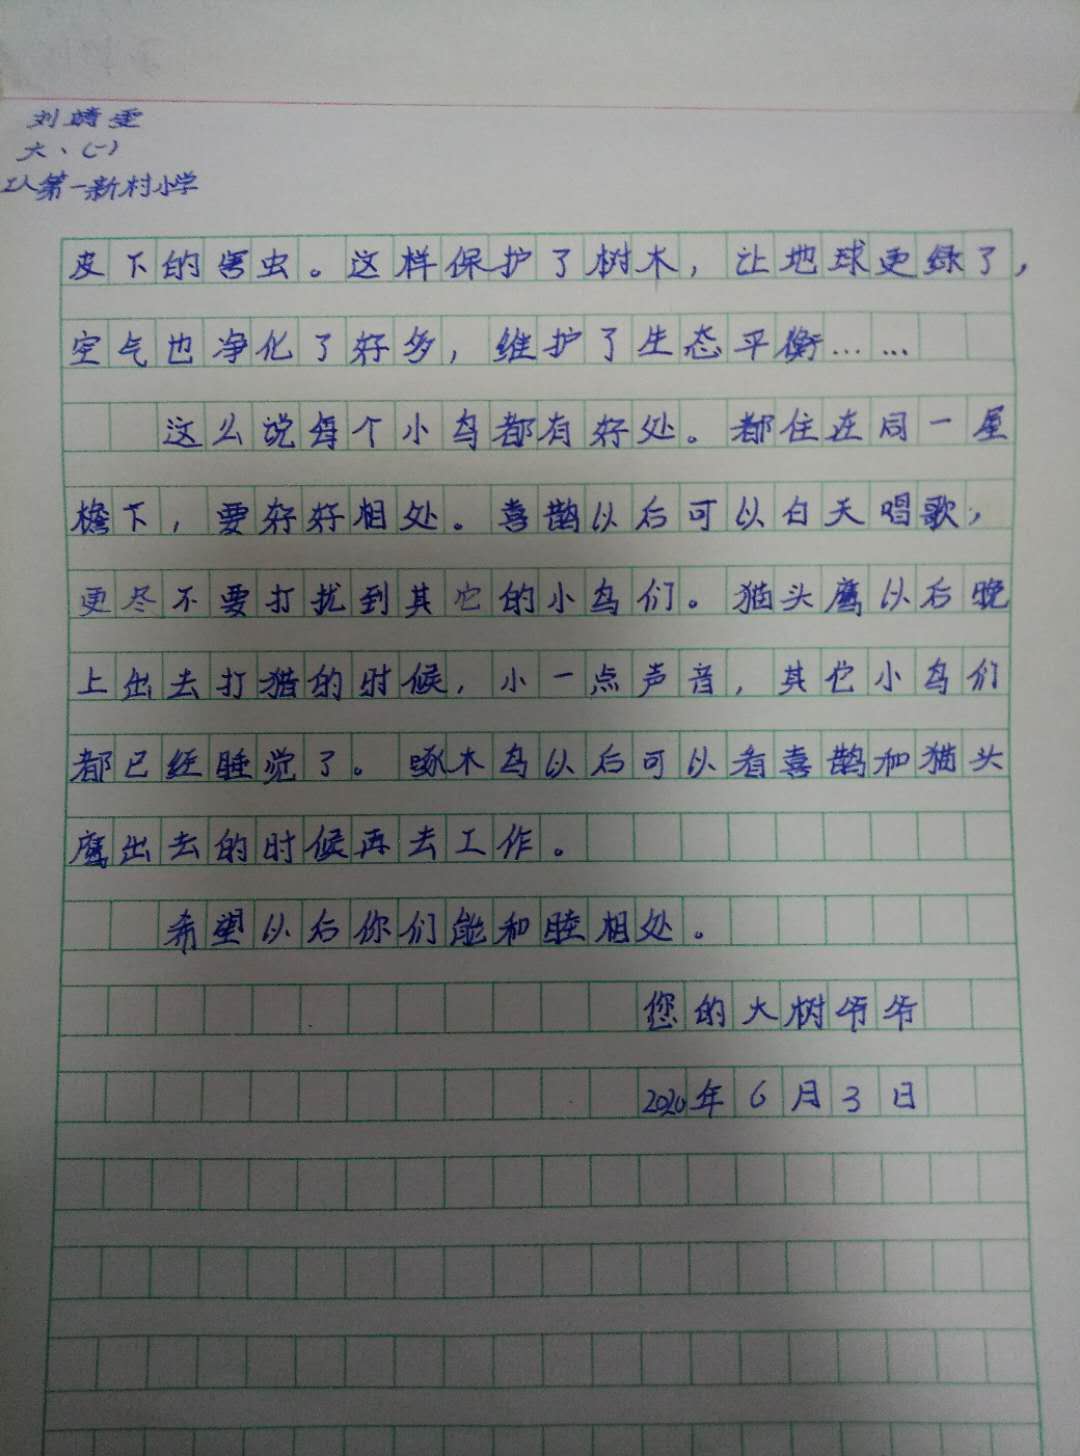 刘婧雯
六、(一)
工人第一新村小学
皮下的害虫。这样保护了树木，让地球更绿了，
空气也净化了好多，维护了生态平衡……
这么说每个小鸟都有好处。都住在同一屋
檐下，要好好相处。喜鹊以后可以白天唱歌，
更尽不要打扰到其它的小鸟们。猫头鹰以后晚
上出去打猎的时候，小一点声音，其它小鸟们
都已经睡觉了。啄木鸟以后可以看喜鹊和猫头
鹰出去的时候再去工作。
希望以后你们能和睦相处。
您的大树爷爷
2020年6月3日